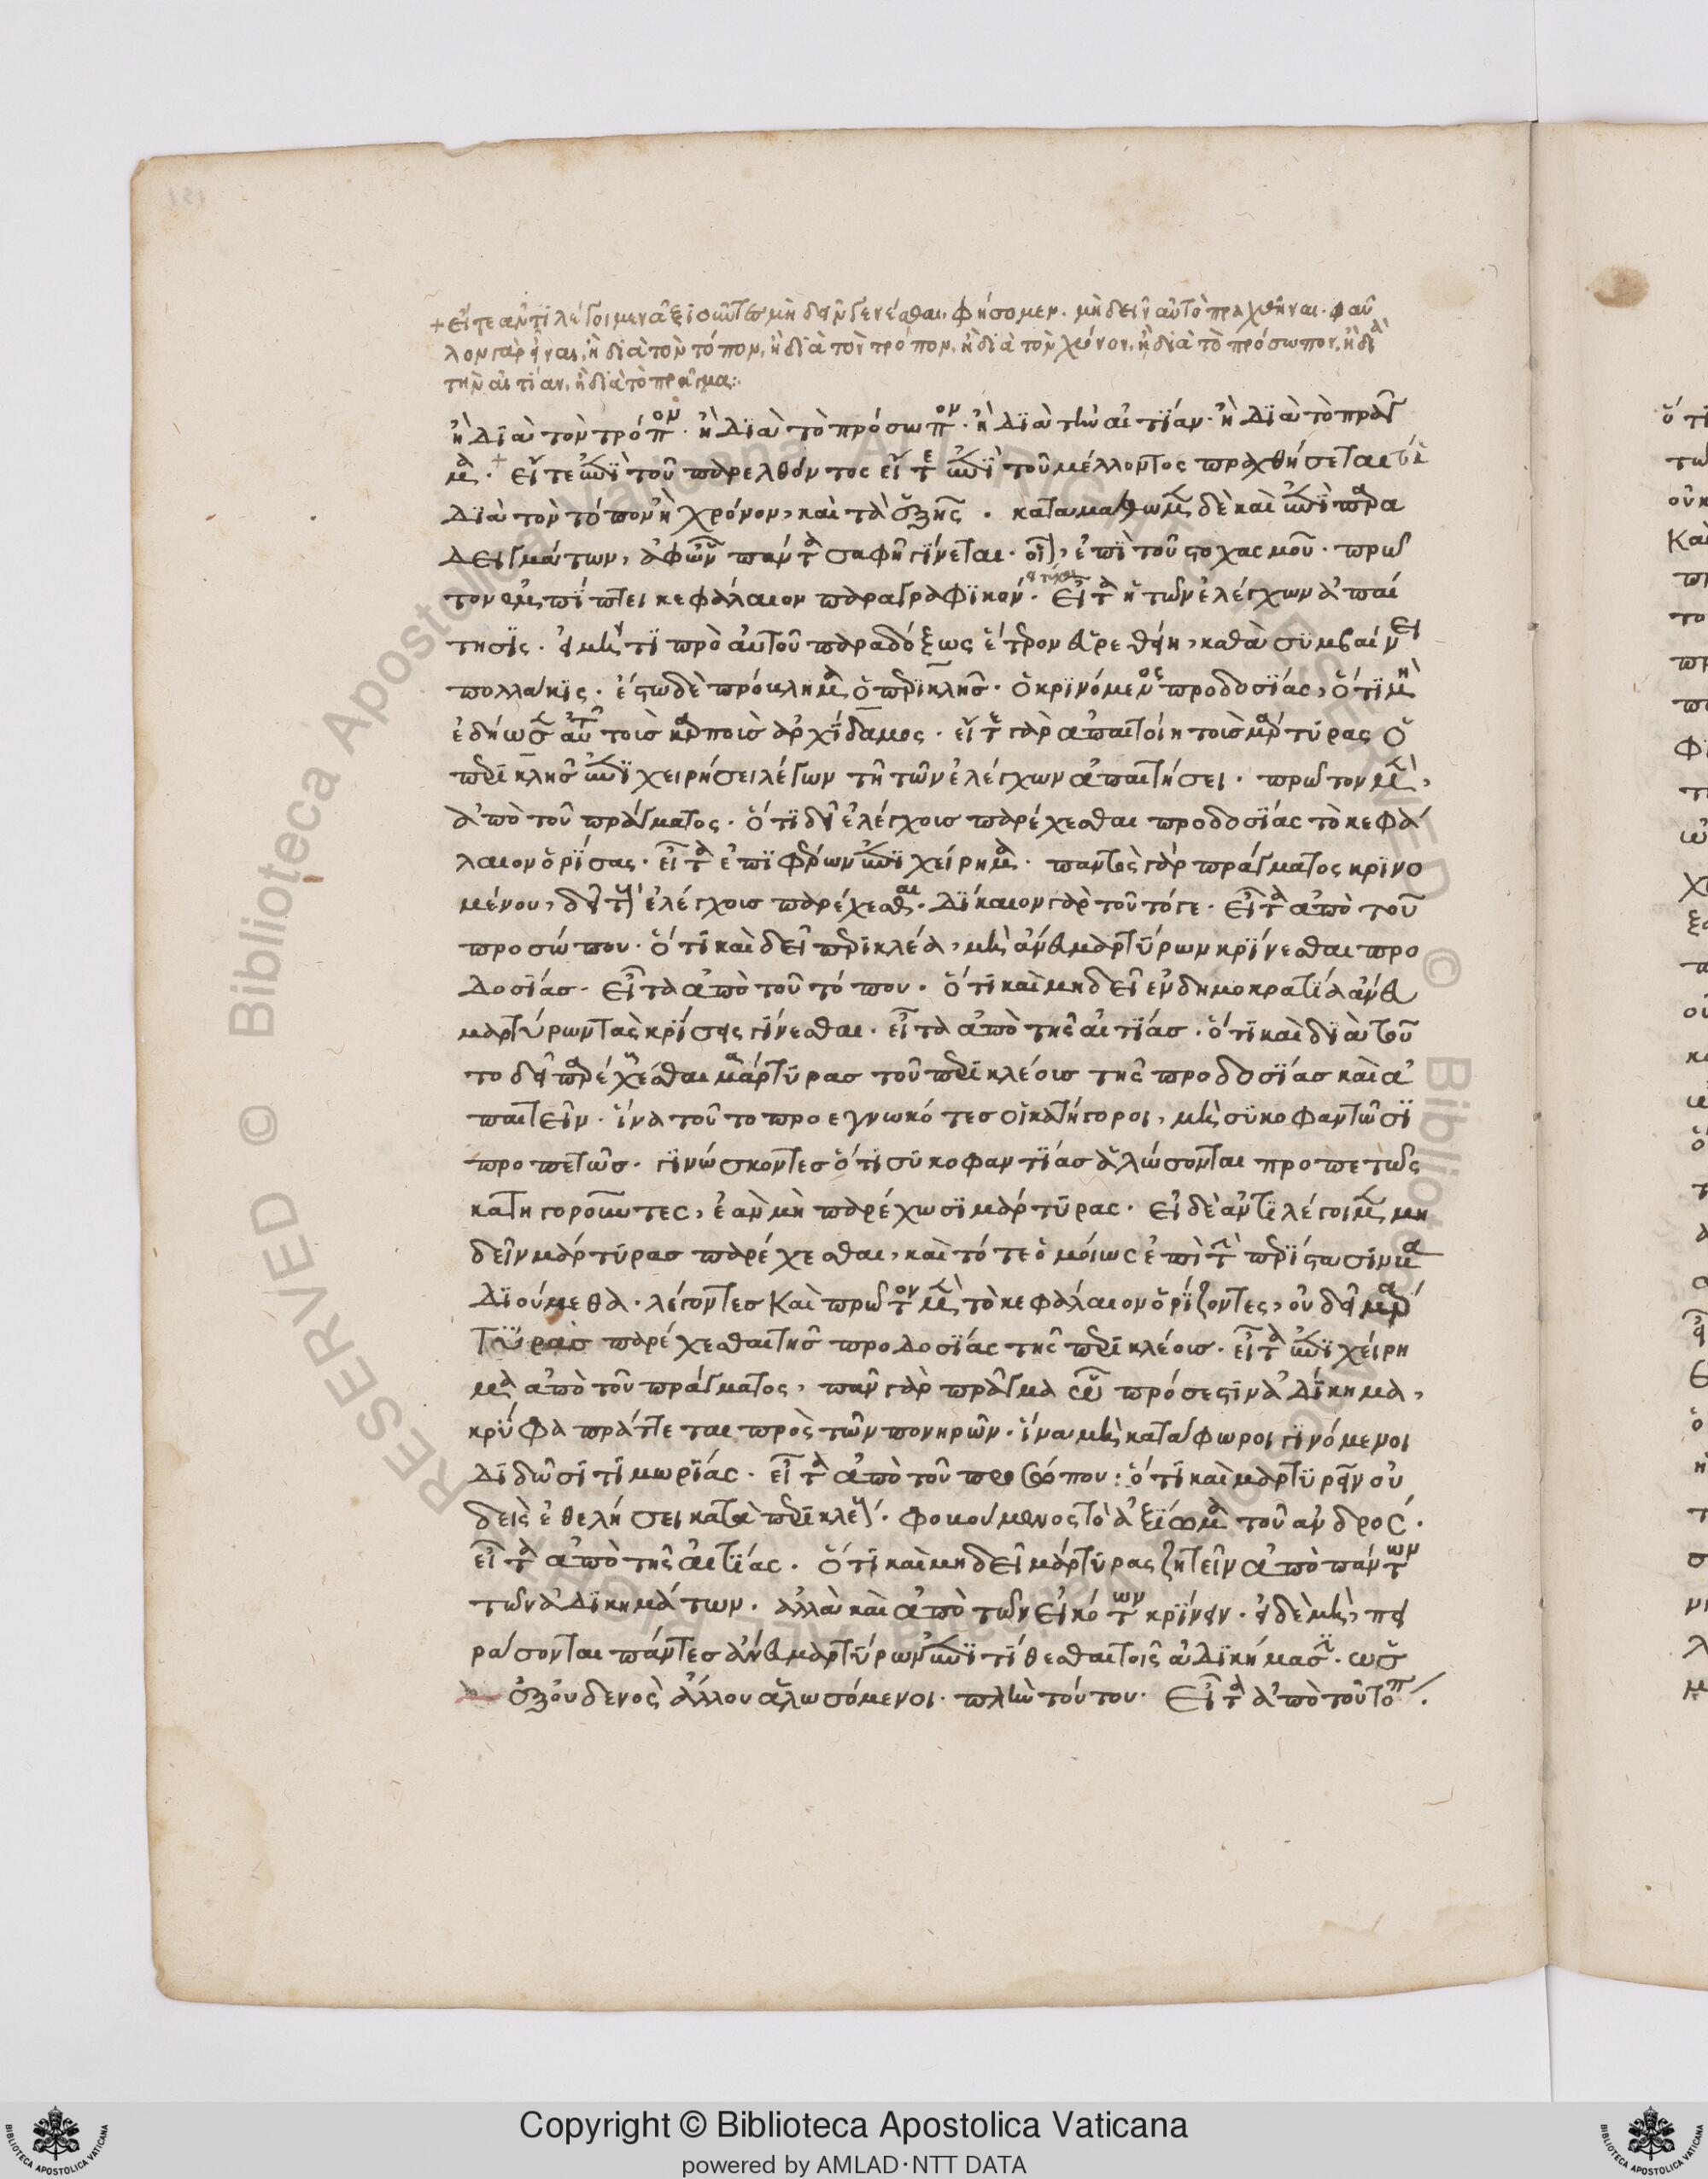 + εἴτε ἀντιλέγοιμεν ἀξιοῦντες μὴ δεῖν γενέσθαι, φήσομεν. μὴ δεῖν αὐτὸ πραχθῆναι. φαῦ
λον γὰρ εἶναι, ἢ διὰ τὸν τόπον, ἢ διὰ τὸν τρόπον, ἢ διὰ τὸν χρόνον, ἢ διὰ τὸ πρόσωπον, ἢ διὰ
τὴν αἰτίαν, ἢ διὰ τὸ πρᾶγμα:
ἢ διὰ τὸν τρόπον. ἢ διὰ τὸ πρόσωπον. ἢ διὰ τὴν αἰτίαν. ἢ διὰ τὸ πρᾶγ
μα. + εἴτε ἐπὶ τοῦ παρελθόντος εἴτε ἐπὶ τοῦ μέλλοντος πραχθήσεται
διὰ τὸν τόπον ἢ χρόνον, καὶ τὰ ἑξῆς. καταμάθωμεν δὲ καὶ ἐπὶ παρα
δειγμάτων, ἀφ' ὧν πάντα σαφῆ γίνεται. οἷον, ἐπὶ τοῦ στοχασμοῦ. πρῶ
τον ἐμπίπτει κεφάλαιον παραγραφικόν. εἶτα ἡ τῶν ἐλέγχων ἀπαί
τησις. εἰ μή τι πρὸ αὐτοῦ παραδόξως ἕτερον εὑρεθείη, καθὰ συμβαίνει
πολλάκις. ἔστω δὲ πρόβλημα ὁ περικλῆς. ὁ κρινόμενος προδοσίας, ὅτι μὴ
ἐδήωσεν αὐτοῦ τοὺς κήπους ἀρχίδαμος. εἴτε γὰρ ἀπαιτοίη τοὺς μάρτυρας ὁ
περικλῆς ἐπιχειρήσει λέγων τῇ τῶν ἐλέγχων ἀπαιτήσει. πρῶτον μὲν,
ἀπὸ τοῦ πράγματος. ὅτι δεῖ ἐλέγχους παρέχεσθαι προδοσίας τὸ κεφά
λαιον ὁρίσας. εἶτα ἐπιφέρων ἐπιχείρημα. παντὸς γὰρ πράγματος κρινο
μένου, δεῖ τοὺς ἐλέγχους παρέχεσθαι. δίκαιον γὰρ τοῦτό γε. εἶτα ἀπὸ τοῦ
προσώπου. ὅτι καὶ δεῖ περικλέα, μὴ ἄνευ μαρτύρων κρίνεσθαι προ
δοσίας. εἶτα ἀπὸ τοῦ τόπου. ὅτι καὶ μὴ δεῖ ἐν δημοκρατίᾳ ἄνευ
μαρτύρων τὰς κρίσεις γίνεσθαι. εἶτα ἀπὸ τῆς αἰτίας. ὅτι καὶ διὰ τοῦ
το δεῖ παρέχεσθαι μάρτυρας τοῦ περικλέους τῆς προδοσίας καὶ ἀ
παιτεῖν. ἵνα τοῦτο προεγνωκότες οἱ κατήγοροι, μὴ συκοφαντῶσι
προπετῶς. γινώσκοντες ὅτι συκοφαντίας ἁλώσονται προπετῶς
κατηγοροῦντες, ἐὰν μὴ παρέχωσι μάρτυρας. εἰ δὲ ἀντιλέγοιμεν μὴ
δεῖν μάρτυρας παρέχεσθαι, καὶ τότε ὁμοίως ἐπὶ τὰ περίστασιν μα
διούμεθα. λέγοντες καὶ πρῶτον μὲν τὸ κεφάλαιον ὁρίζοντες, οὐ δεῖ μάρ
τυρας παρέχεσθαι τῆς προδοσίας τῆς περικλέους. εἶτα ἐπιχείρη
μα ἀπὸ τοῦ πράγματος, πᾶν γὰρ πρᾶγμα ᾧ πρόσεστιν ἀδίκημα,
κρύφα πράττεται πρὸς τῶν πονηρῶν. ἵνα μὴ κατάφωροι γινόμενοι
διδῶσι τιμωρίας. εἶτα ἀπὸ τοῦ προσώπου: ὅτι καὶ μαρτυρεῖν οὐ
δεὶς ἐθελήσει κατὰ περικλέους. φοβούμενος τὸ ἀξίωμα τοῦ ἀνδρός.
εἶτα ἀπὸ τῆς αἰτίας. ὅτι καὶ μὴ δεῖ μάρτυρας ζητεῖν ἀπὸ πάντων
τῶν ἀδικημάτων. ἀλλὰ καὶ ἀπὸ τῶν εἰκότων κρίνειν. εἰ δὲ μὴ, πει
ράσονται πάντες ἄνευ μαρτύρων ἐπιτίθεσθαι τοῖς ἀδικήμασιν. ὡς
ἐξ οὐδενὸς ἄλλου ἁλωσόμενοι. πλὴν τούτου. εἶτα ἀπὸ τοῦ τόπ